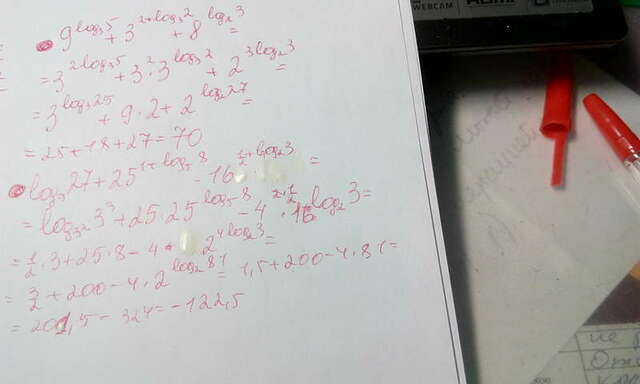 9^{log_3 5} + 3^{2+log_3 2} + 8^{log_2 3} =
= 3^{2log_3 5} + 3^2 · 3^{log_3 2} + 2^{3log_2 3} =
= 3^{log_3 25} + 9 · 2 + 2^{log_2 27} =
= 25 + 18 + 27 = 70
log_9 27 + 25^{1+log_5 8} - 16^{1/2+log_2 3} =
= log_{3^2} 3^3 + 25 · 25^{log_5 8} - 4^{2·1/2} · 16^{log_2 3} =
= 1/2 · 3 + 25 · 8 - 4 · 2^{4log_2 3} =
= 3/2 + 200 - 4 · 2^{log_2 81} = 1,5 + 200 - 4 · 81 =
= 201,5 - 324 = -122,5
WEBCAM
HDMI